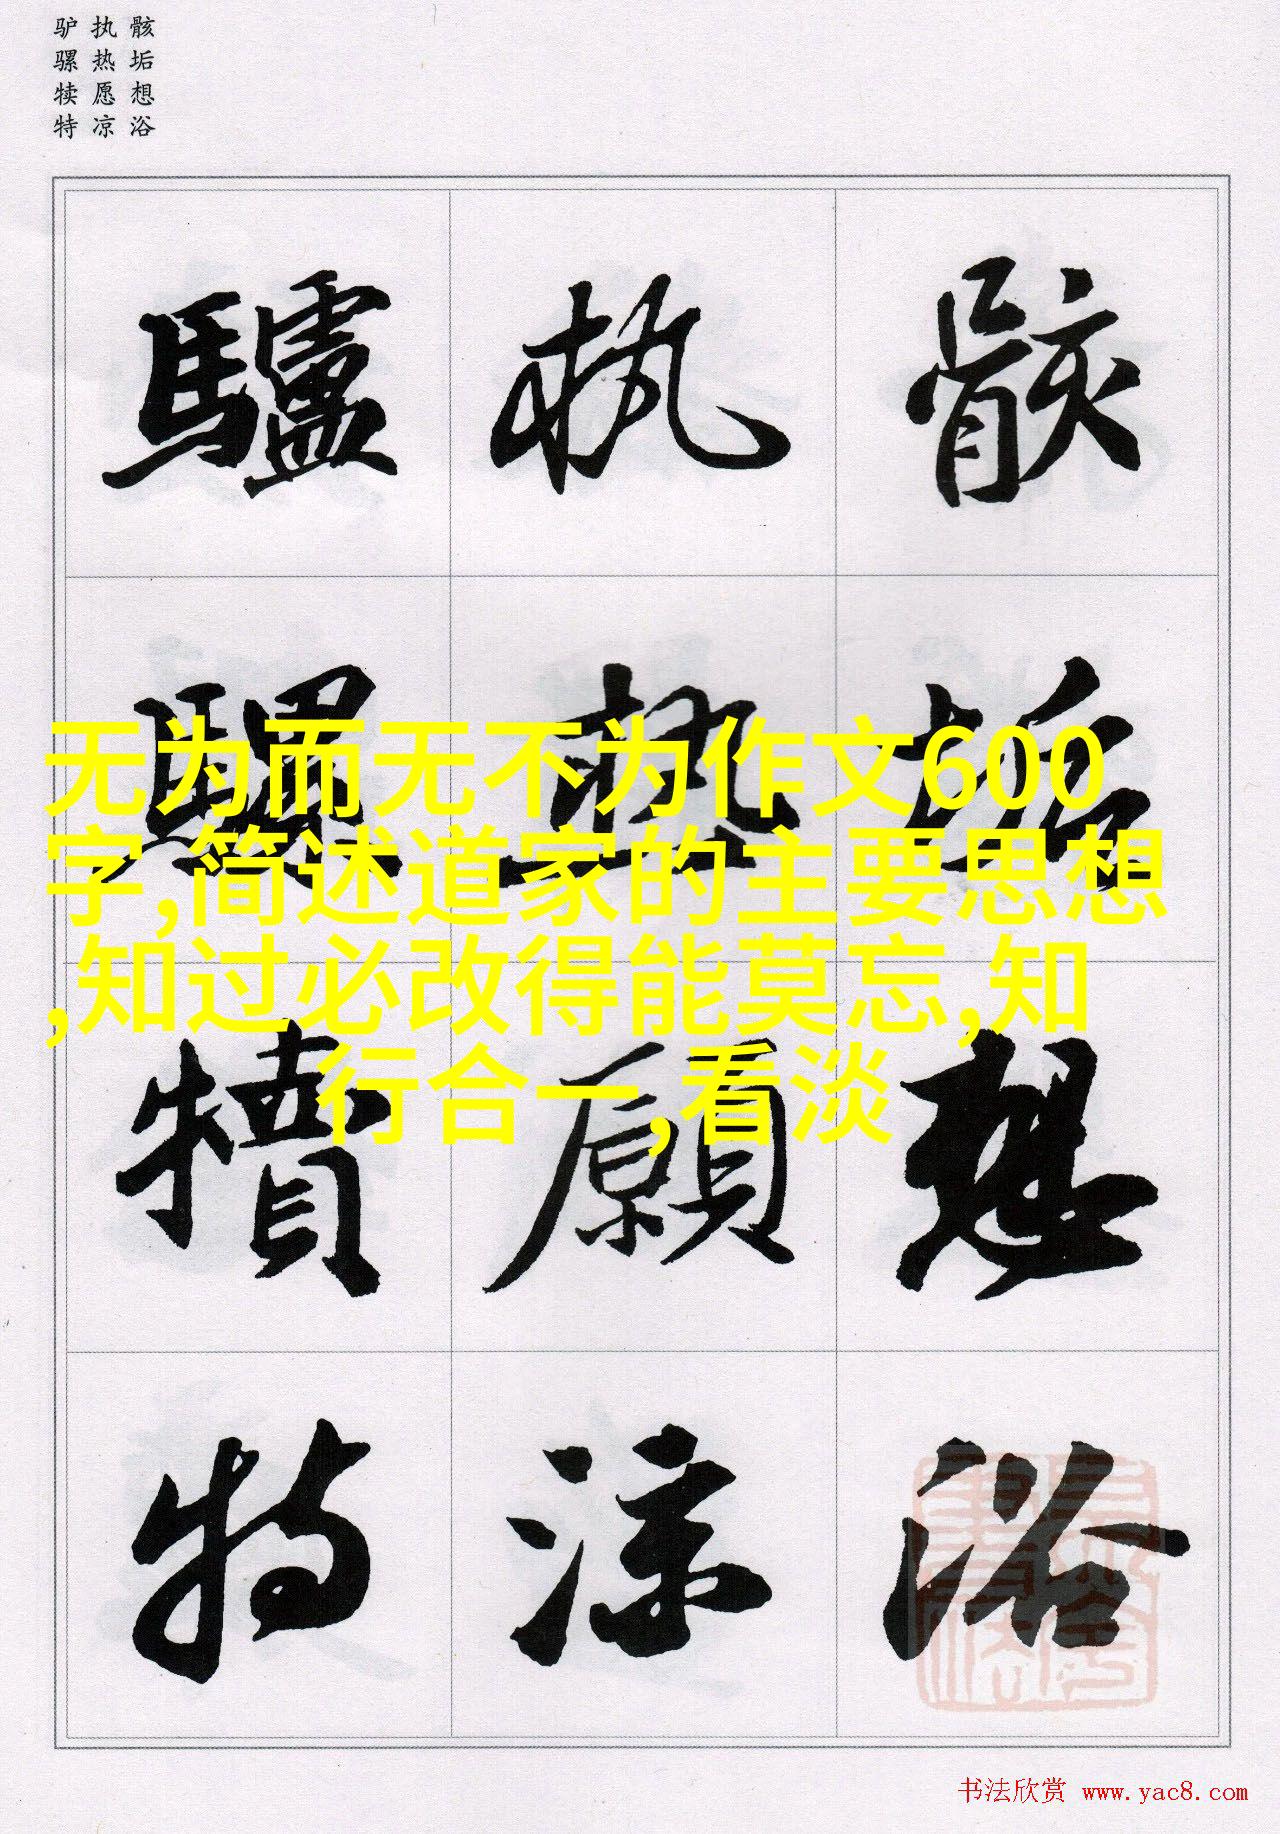 骸垢想浴
执热愿凉
驴骡犊特
骸垢想浴
执热願凉
驢騾犢特
无为而无不为作文600
字,简述道家的主要思想
,知过必改得能莫忘,知
行合一,看淡
书法欣赏 www.yac8.com